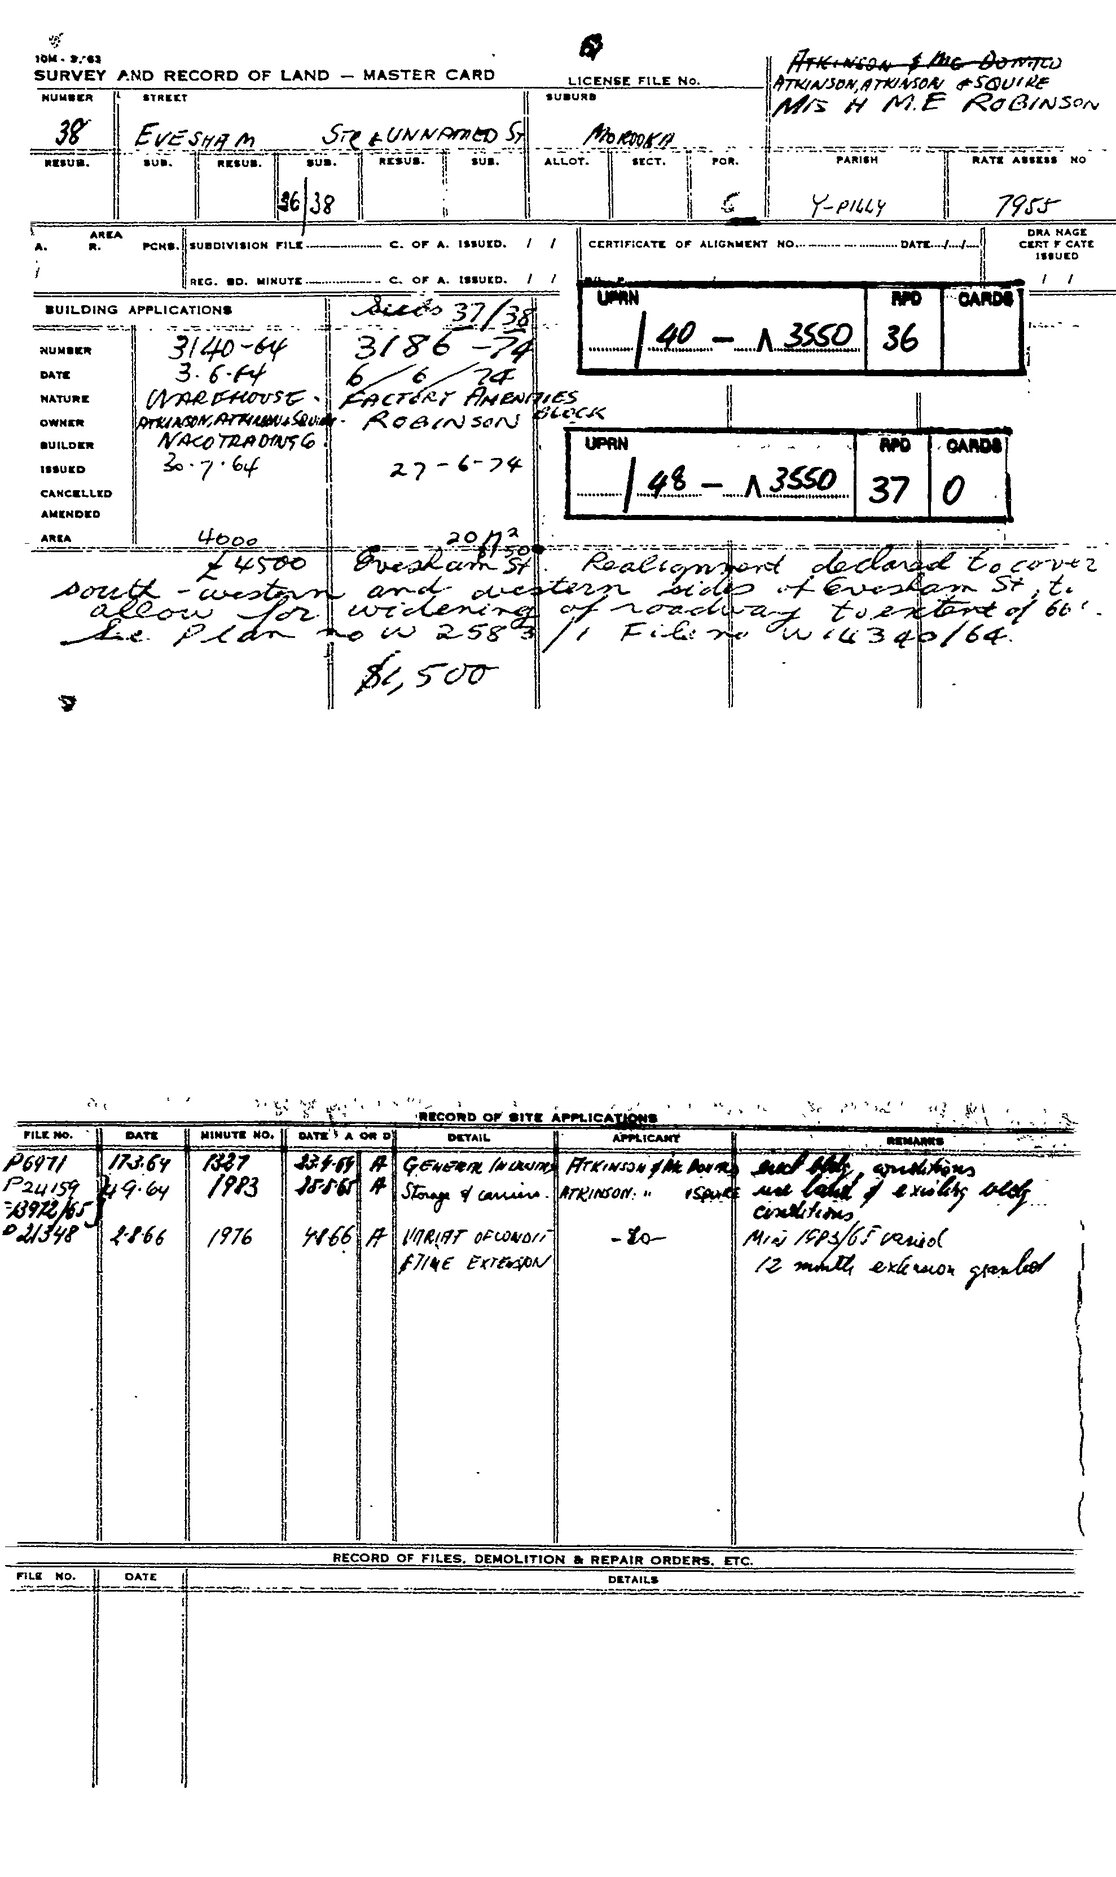 10M - 3/63
SURVEY AND RECORD OF LAND — MASTER CARD
LICENSE FILE No.
ATKINSON & Mc DONALD
ATKINSON, ATKINSON & SQUIRE
Mrs H M.E ROBINSON
NUMBER STREET SUBURB
38 EVESHAM STR & UNNAMED ST MOROOKA
RESUB. SUB. RESUB. SUB. RESUB. SUB. ALLOT. SECT. POR. PARISH RATE ASSESS NO
36/38 Y-PILLY 7955
A. AREA R. PCHS. SUBDIVISION FILE C. OF A. ISSUED. / / CERTIFICATE OF ALIGNMENT NO. DATE / / DRA NAGE CERT F CATE ISSUED
REG. BD. MINUTE C. OF A. ISSUED. / / / /
BUILDING APPLICATIONS Subs 37/38
UPRN RPD CARDS
/ 40 - A 3550 36
NUMBER 3140-64 3186-74
DATE 3.6.64 6/6/74
NATURE WAREHOUSE. FACTORY AMENITIES BLOCK
OWNER ATKINSON, ATKINSON & SQUIRE. ROBINSON
BUILDER NACO TRADING Co.
ISSUED 30.7.64 27-6-74
CANCELLED
AMENDED
UPRN RPD CARDS
/ 48 - A 3550 37 0
AREA 4000 20 M²
£4500 Evesham St. Realignment declared to cover
south-western and western sides of Evesham St, to
allow for widening of roadway to extent of 66'.
See Plan no W 2583/1 File no W14340/64.
$1,500
RECORD OF SITE APPLICATIONS
FILE NO. DATE MINUTE NO. DATE A OR D DETAIL APPLICANT REMARKS
P6971 17.3.64 1327 23.4.64 A GENERAL INDUSTRY ATKINSON & Mc DONALD erect bldg, conditions
P24159 4.9.64 1983 25.5.65 A Storage of carriers. ATKINSON " & SQUIRE use land & existing bldg
13972/65 conditions
P21348 2.8.66 1976 4.8.66 A VARIAT OF CONDIT -Do- Min 1983/65 varied
& TIME EXTENSION 12 month extension granted
RECORD OF FILES, DEMOLITION & REPAIR ORDERS, ETC.
FILE NO. DATE DETAILS